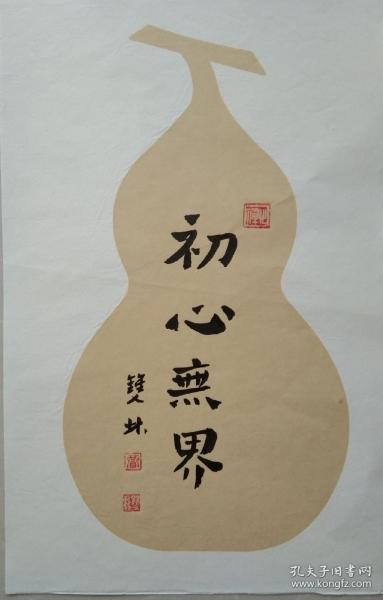 初心無界
孔夫子旧书网
www.kongfz.com